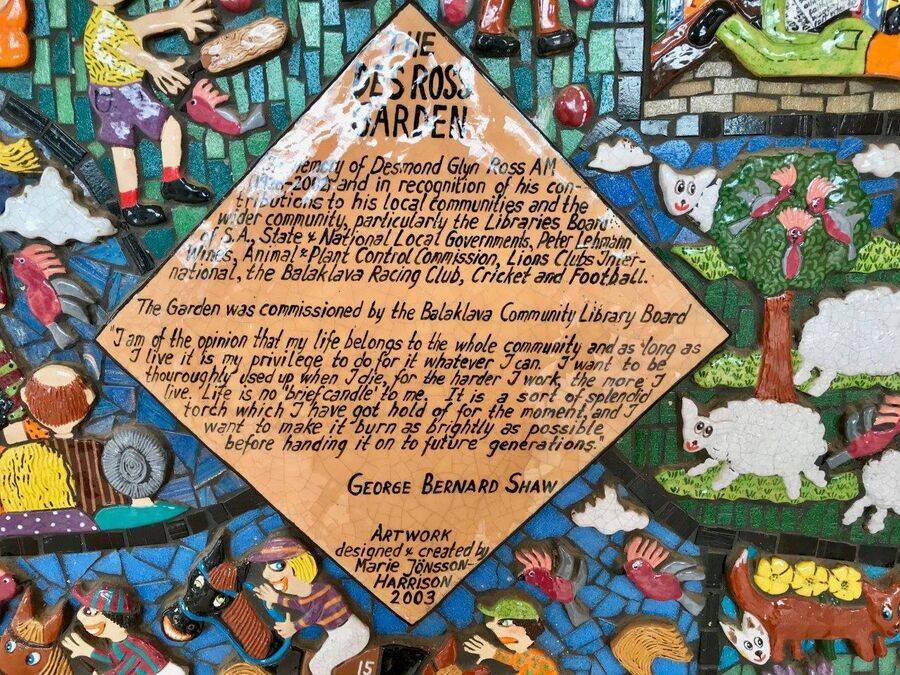 THE
DES ROSS
GARDEN
memory of Desmond Glyn Ross AM
and in recognition of his con-
tributions to his local communities and the
wider community, particularly the Libraries Board
of S.A., State & National Local Governments, Peter Lehmann
Wines, Animal & Plant Control Commission, Lions Clubs Inter-
national, the Balaklava Racing Club, Cricket and Football.
The Garden was commissioned by the Balaklava Community Library Board
"I am of the opinion that my life belongs to the whole community and as long as
I live it is my privilege to do for it whatever I can. I want to be
thouroughly used up when I die, for the harder I work, the more I
live. Life is no 'brief candle' to me. It is a sort of splendid
torch which I have got hold of for the moment, and I
want to make it burn as brightly as possible
before handing it on to future generations."
GEORGE BERNARD SHAW
ARTWORK
designed & created by
Marie JONSSON-
HARRISON
2003
15